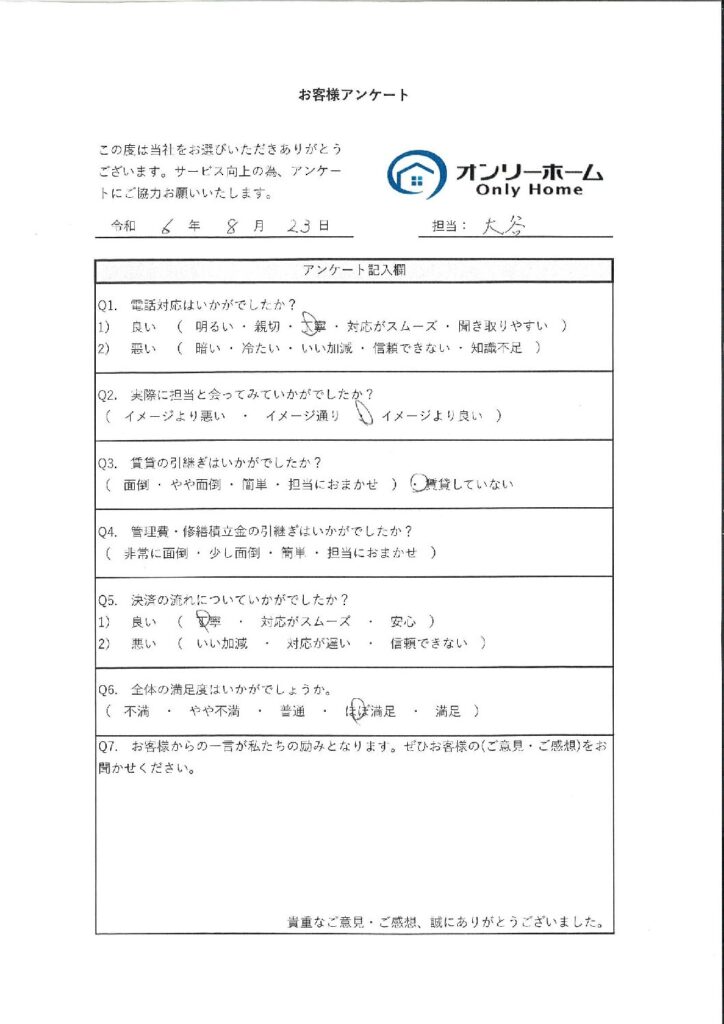 お客様アンケート
この度は当社をお選びいただきありがとう
ございます。サービス向上の為、アンケー
トにご協力お願いいたします。
オンリーホーム
Only Home
令和 6 年 8 月 23 日 担当： 大谷
アンケート記入欄
Q1. 電話対応はいかがでしたか？
1) 良い （ 明るい ・ 親切 ・ 丁寧 ・ 対応がスムーズ ・ 聞き取りやすい ）
2) 悪い （ 暗い ・ 冷たい ・ いい加減 ・ 信頼できない ・ 知識不足 ）
Q2. 実際に担当と会ってみていかがでしたか？
（ イメージより悪い ・ イメージ通り ・ イメージより良い ）
Q3. 賃貸の引継ぎはいかがでしたか？
（ 面倒 ・ やや面倒 ・ 簡単 ・ 担当におまかせ ） ・ 賃貸していない
Q4. 管理費・修繕積立金の引継ぎはいかがでしたか？
（ 非常に面倒 ・ 少し面倒 ・ 簡単 ・ 担当におまかせ ）
Q5. 決済の流れについていかがでしたか？
1) 良い （ 丁寧 ・ 対応がスムーズ ・ 安心 ）
2) 悪い （ いい加減 ・ 対応が遅い ・ 信頼できない ）
Q6. 全体の満足度はいかがでしょうか。
（ 不満 ・ やや不満 ・ 普通 ・ ほぼ満足 ・ 満足 ）
Q7. お客様からの一言が私たちの励みとなります。ぜひお客様の(ご意見・ご感想)をお
聞かせください。
貴重なご意見・ご感想、誠にありがとうございました。